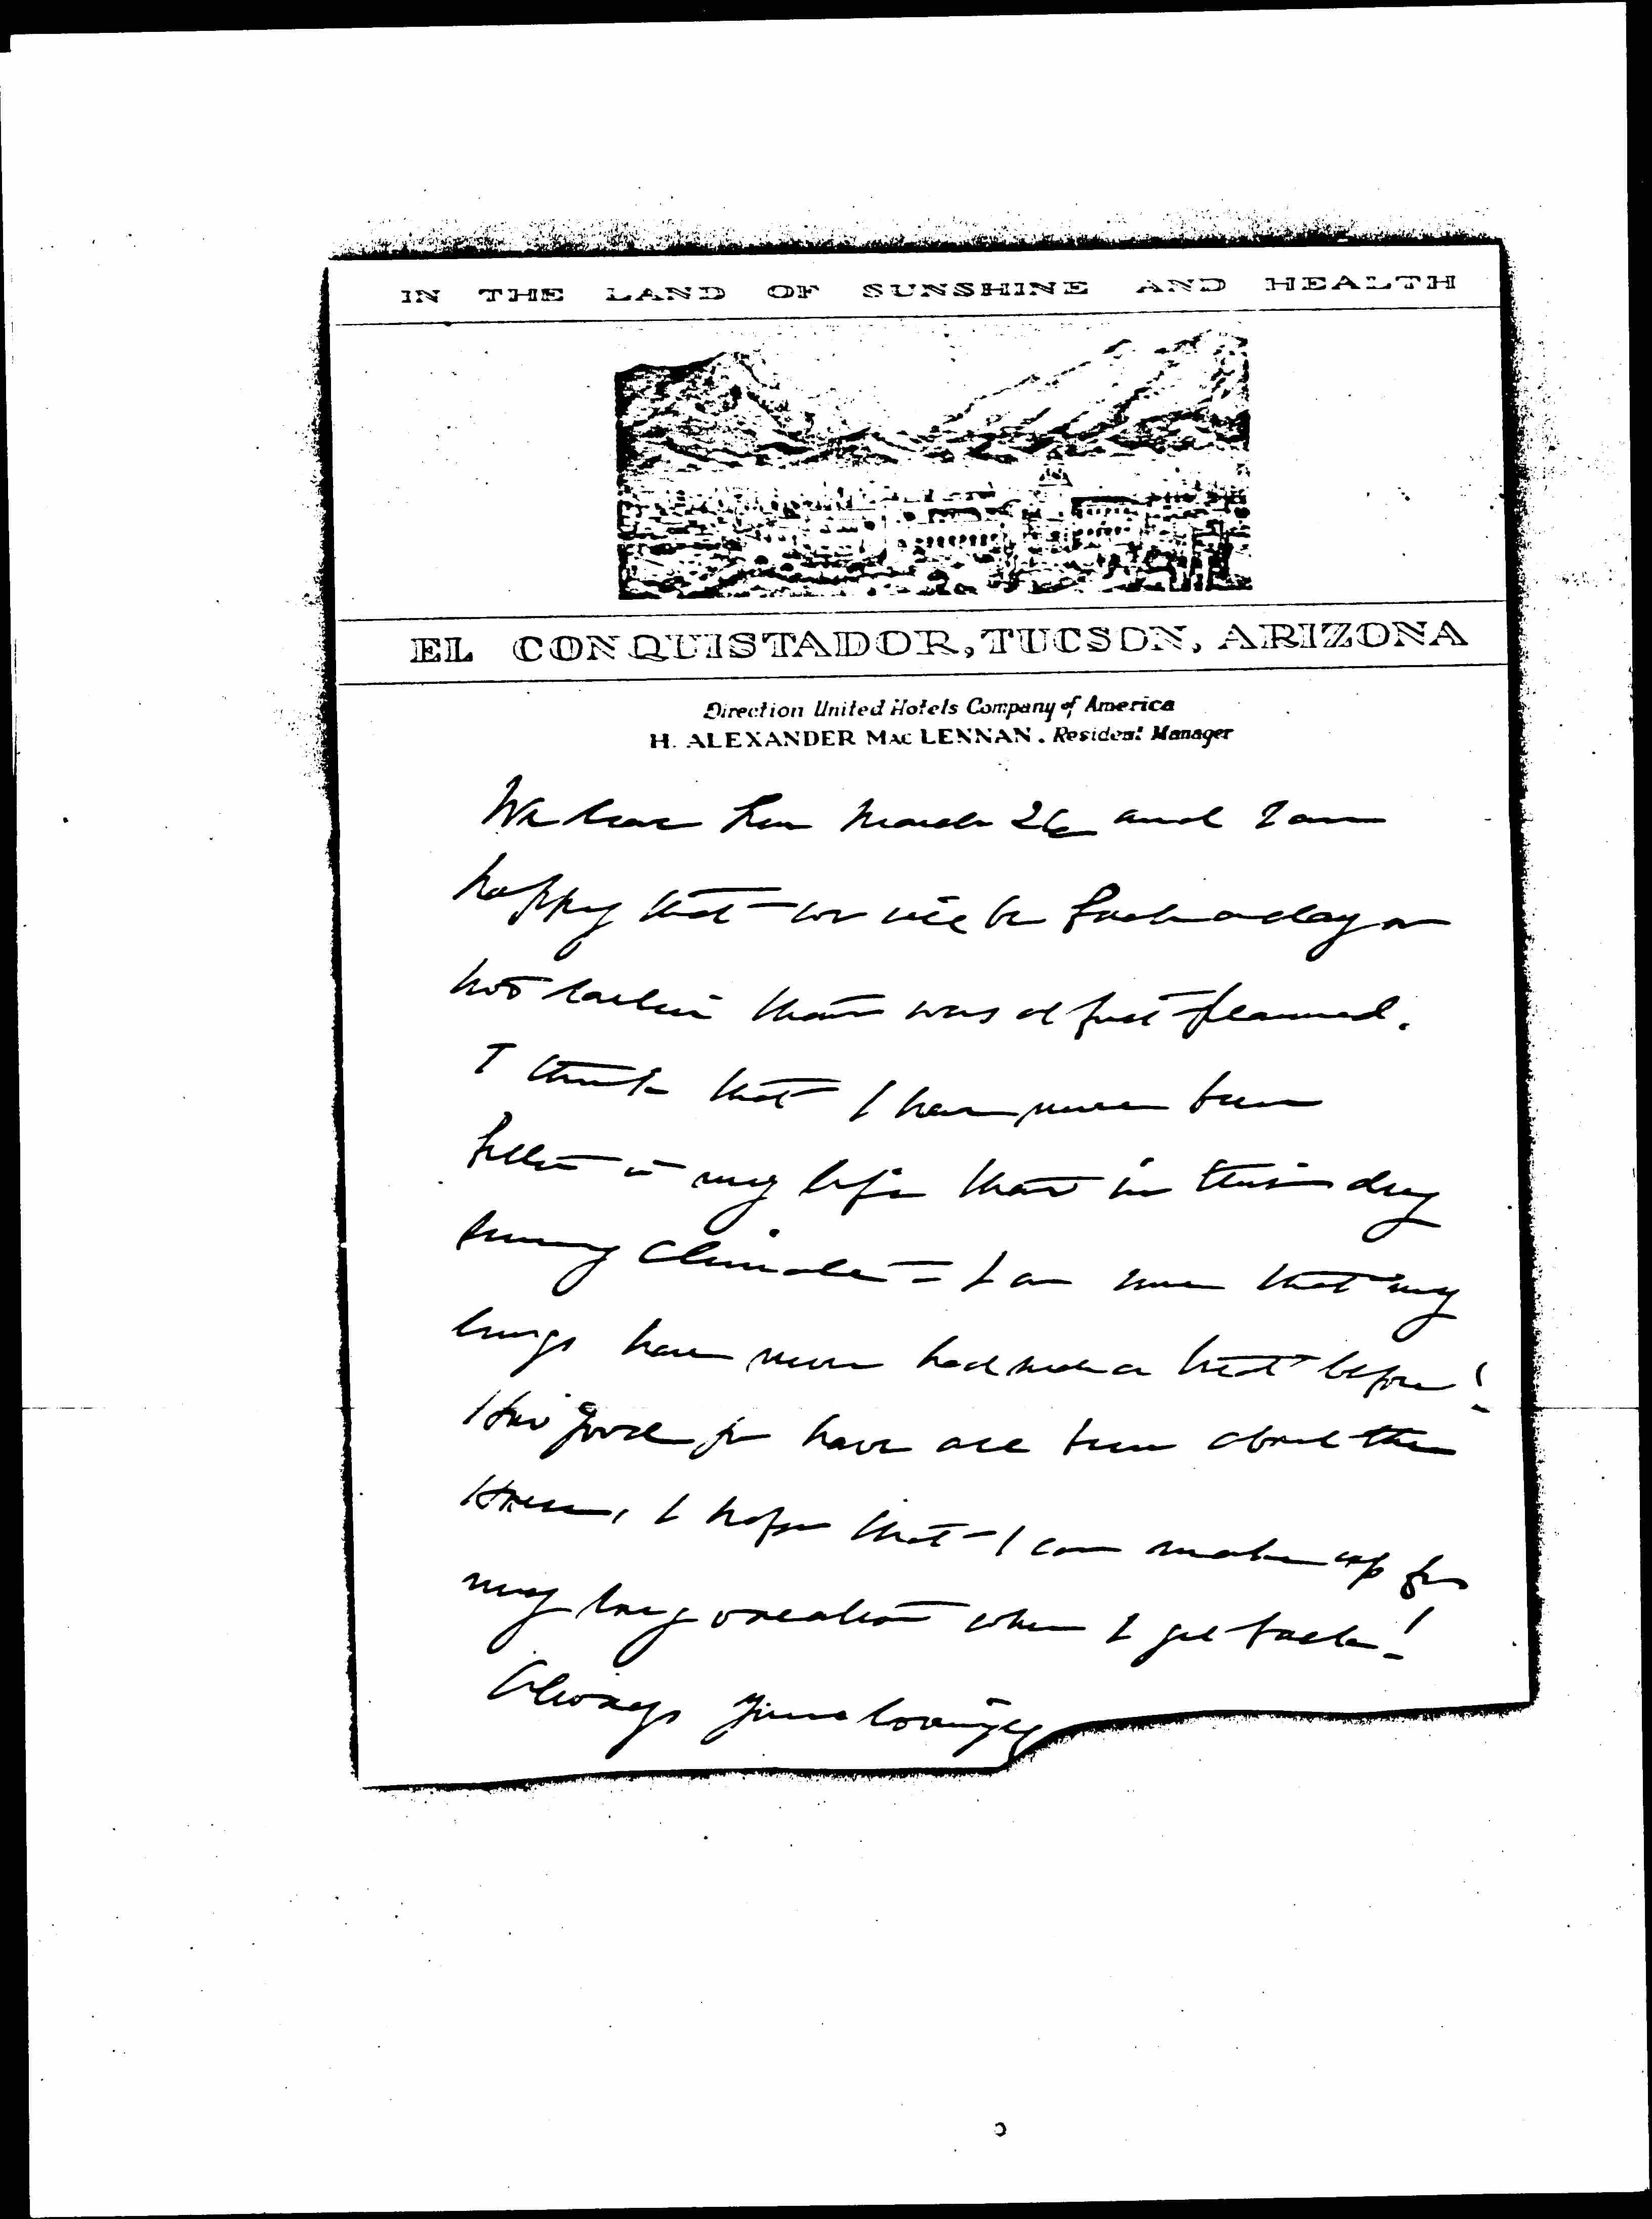 IN THE LAND OF SUNSHINE AND HEALTH
EL CONQUISTADOR, TUCSON, ARIZONA
Direction United Hotels Company of America
H. ALEXANDER MAC LENNAN. Resident Manager
We leave here March 26 and I am
happy that we will be back a day or
two earlier than was at first planned.
I think that I have never been
better in my life than in this dry
sunny climate = I am sure that my
lungs have never had such a treat before!
How good you have all been about the
House, I hope that I can make up for
my long vacation when I get back!
Always yours lovingly